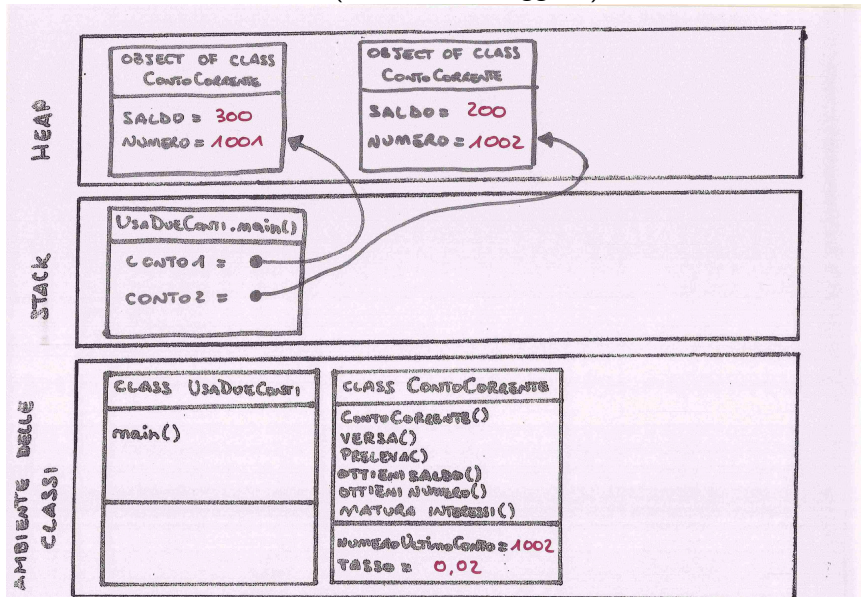 HEAP
OBJECT OF CLASS
CONTOCORRENTE
SALDO = 300
NUMERO = 1001
OBJECT OF CLASS
CONTOCORRENTE
SALDO = 200
NUMERO = 1002
STACK
USADUECONTI.main()
CONTO1 =
CONTO2 =
AMBIENTE DELLE
CLASSI
CLASS USADUECONTI
main()
CLASS CONTOCORRENTE
CONTOCORRENTE()
VERSA()
PRELEVA()
OTTIENI SALDO()
OTTIENI NUMERO()
MATURA INTERESSI()
NUMEROULTIMOCONTO = 1002
TASSO = 0,02